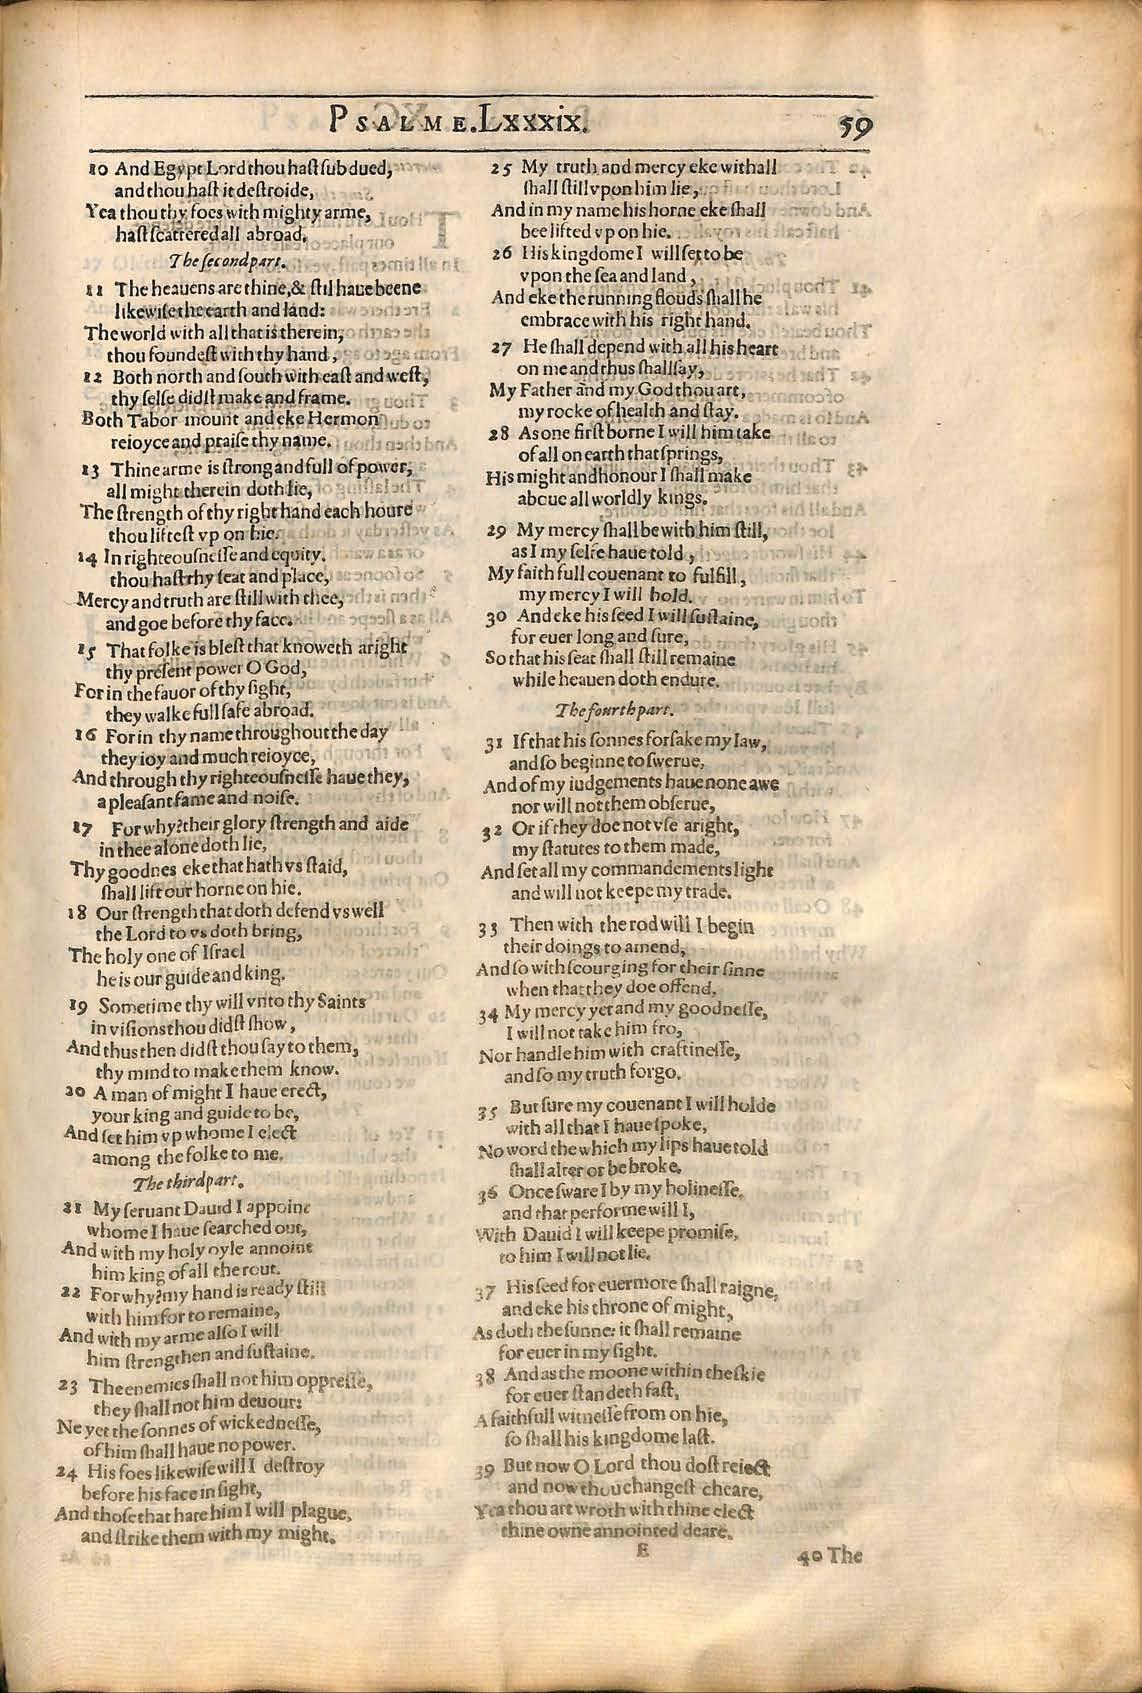 PSALME.Lxxxix.
59
10 And Egypt Lord thou haſt ſubdued,
and thou haſt it deſtroide,
Yea thou thy foes with mighty arme,
haſt ſcattered all abroad.
The ſecond part.
11 The heauens are thine,& ſtil haue beene
likewiſe the earth and land:
The world with all that is therein,
thou foundeſt with thy hand,
12 Both north and ſouth with eaſt and weſt,
thy ſelfe didſt make and frame.
Both Tabor mount and eke Hermon
reioyce and praiſe thy name.
13 Thine arme is ſtrong and full of power,
all might therein doth lie,
The ſtrength of thy right hand each houre
thou lifteſt vp on hie.
14 In righteouſneſſe and equity.
thou haſt thy ſeat and place,
Mercy and truth are ſtill with thee,
and goe before thy face.
15 That folke is bleſt that knoweth aright
thy preſent power O God,
For in the fauor of thy ſight,
they walke full ſafe abroad.
16 For in thy name throughout the day
they ioy and much reioyce,
And through thy righteouſneſſe haue they,
a pleaſant fame and noiſe.
17 For why?their glory ſtrength and aide
in thee alone doth lie,
Thy goodnes eke that hath vs ſtaid,
ſhall lift our horne on hie.
18 Our ſtrength that doth defend vs well
the Lord to vs doth bring,
The holy one of Iſrael
he is our guide and king.
19 Sometime thy will vnto thy Saints
in viſions thou didſt ſhow,
And thus then didſt thou ſay to them,
thy mind to make them know.
20 A man of might I haue erect,
your king and guide to be,
And ſet him vp whome I elect
among the folke to me.
The third part.
21 My ſeruant Dauid I appoint
whome I haue ſearched out,
And with my holy oyle annoint
him king of all the rout.
22 For why?my hand is ready ſtill
with him for to remaine,
And with my arme alſo I will
him ſtrengthen and ſuſtaine.
23 The enemies ſhall not him oppreſſe,
they ſhall not him deuour:
Ne yet the ſonnes of wickedneſſe,
of him ſhall haue no power.
24 His foes likewiſe will I deſtroy
before his face in ſight,
And thoſe that hate him I will plague,
and ſtrike them with my might.
25 My truth and mercy eke withall
ſhall ſtill vpon him lie,
And in my name his horne eke ſhall
bee lifted vp on hie.
26 His kingdome I will ſet to be
vpon the ſea and land,
And eke the running flouds ſhall he
embrace with his right hand.
27 He ſhall depend with all his heart
on me and thus ſhall ſay,
My Father and my God thou art,
my rocke of health and ſtay.
28 As one firſt borne I will him take
of all on earth that ſprings,
His might and honour I ſhall make
aboue all worldly kings.
29 My mercy ſhall be with him ſtill,
as I my ſelfe haue told,
My faithfull couenant to fulfill,
my mercy I will hold.
30 And eke his ſeed I will ſuſtaine,
for euer long and ſure,
So that his ſeat ſhall ſtill remaine
while heauen doth endure.
The fourth part.
31 If that his ſonnes forſake my law,
and ſo beginne to ſwerue,
And of my iudgements haue none awe
nor will not them obſerue,
32 Or if they doe not vſe aright,
my ſtatutes to them made,
And ſet all my commandements light
and will not keepe my trade.
33 Then with the rod will I begin
their doings to amend,
And ſo with ſcourging for their ſinne
when that they doe offend,
34 My mercy yet and my goodneſſe,
I will not take him fro,
Nor handle him with craftineſſe,
and ſo my truth forgo.
35 But ſure my couenant I will holde
with all that I haue ſpoke,
No word the which my lips haue told
ſhall alter or be broke.
36 Once ſware I by my holineſſe,
and that performe will I,
With Dauid I will keepe promiſe,
to him I will not lie.
37 His ſeed for euermore ſhall raigne,
and eke his throne of might,
As doth the ſunne: it ſhall remaine
for euer in my ſight.
38 And as the moone within the ſkie
for euer ſtandeth faſt,
A faithfull witneſſe from on hie,
ſo ſhall his kingdome laſt.
39 But now O Lord thou doſt reiect
and now thou changeſt cheare,
Yea thou art wroth with thine elect
thine owne annointed deare.
E
40 The